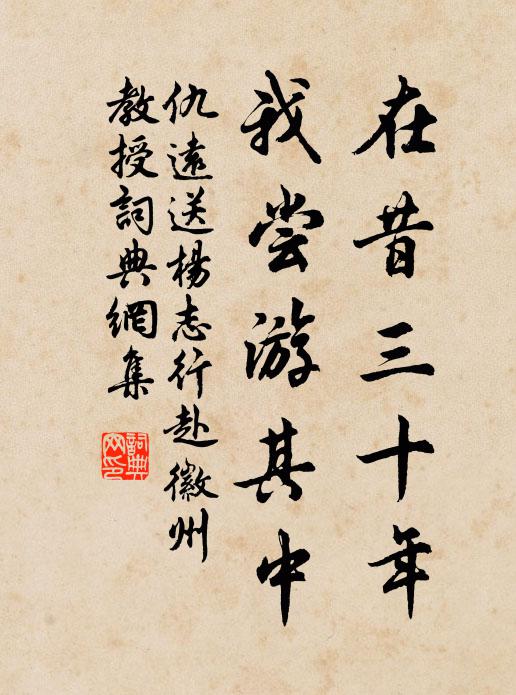 在昔三十年
我尝游其中
仇遠送楊志行赴徽州
教授詞典網集
詞典网印